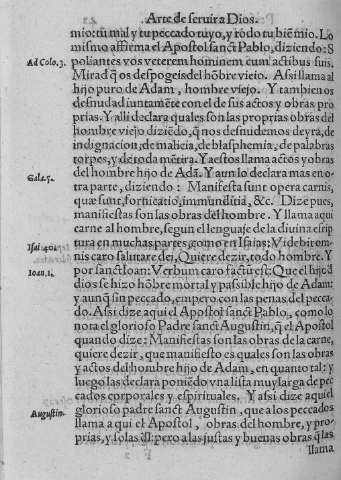 Arte de seruir a Dios.
mio: tu mal y tu peccado tuyo, y todo tu biẽ mio. Lo
mismo affirma el Apostol sanct Pablo, diziendo: S
Ad Colo. 3.
poliantes vos veterem hominem cum actibus suis.
Mirad q̃ os despogeis del hõbre vieio. Assi llama al
hijo puro de Adam, hombre viejo. Y tambien os
desnudad iuntamẽte con el de sus actos y obras pro
prias. Y alli declara quales son las proprias obras del
hombre viejo diziẽdo, q̃ nos desnudemos de yra, de
indignacion, de malicia, de blasphemia, de palabras
torpes, y de toda mẽtira. Ya estos llama actos y obras
del hombre hijo de Adã. Y aun lo declara mas en o
Gala. 5.
tra parte, diziendo: Manifesta sunt opera carnis,
quæ sunt, fornicatio, immunditia, &c. Dize pues,
manifiestas son las obras del hombre. Y llama aqui
carne al hombre, segun el lenguaje de la diuina escrip
Isai. 40.
tura en muchas partes, como en Isaias: Videbit om-
nis caro salutare dei, Quiere dezir, todo hombre. Y
Ioan. 1.
por sanct Ioan: Verbum caro factũ est: Que el hijo d̃
dios se hizo hõbre mortal y passible hijo de Adam:
y aunq̃ sin peccado, empero con las penas del pecca
do. Assi dize aqui el Apostol sanct Pablo, como lo
nota el glorioso Padre sanct Augustin, q̃ el Apostol
quando dize: Manifiestas son las obras de la carne,
quiere dezir, que manifiesto es quales son las obras
y actos del hombre hijo de Adam, en quanto tal: y
luego las declara poniẽdo vna lista muy larga de pec
cados corporales y espirituales. Y assi dize aqui el
Augustin.
glorioso padre sanct Augustin, que a los peccados
llama a qui el Apostol, obras del hombre, y pro-
prias, y solas d̃l: pero a las justas y buenas obras q̃ las
llama